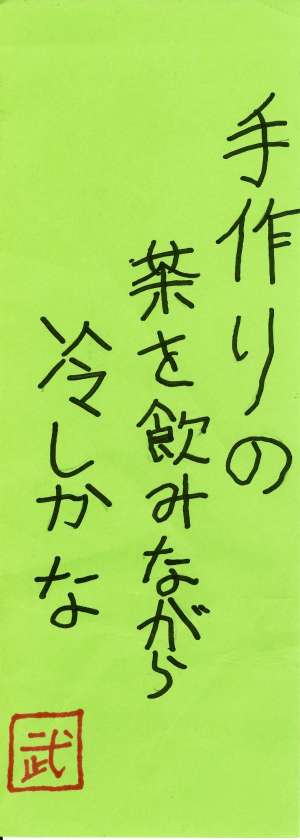 手作りの
茶を飲みながら
冷しかな
武